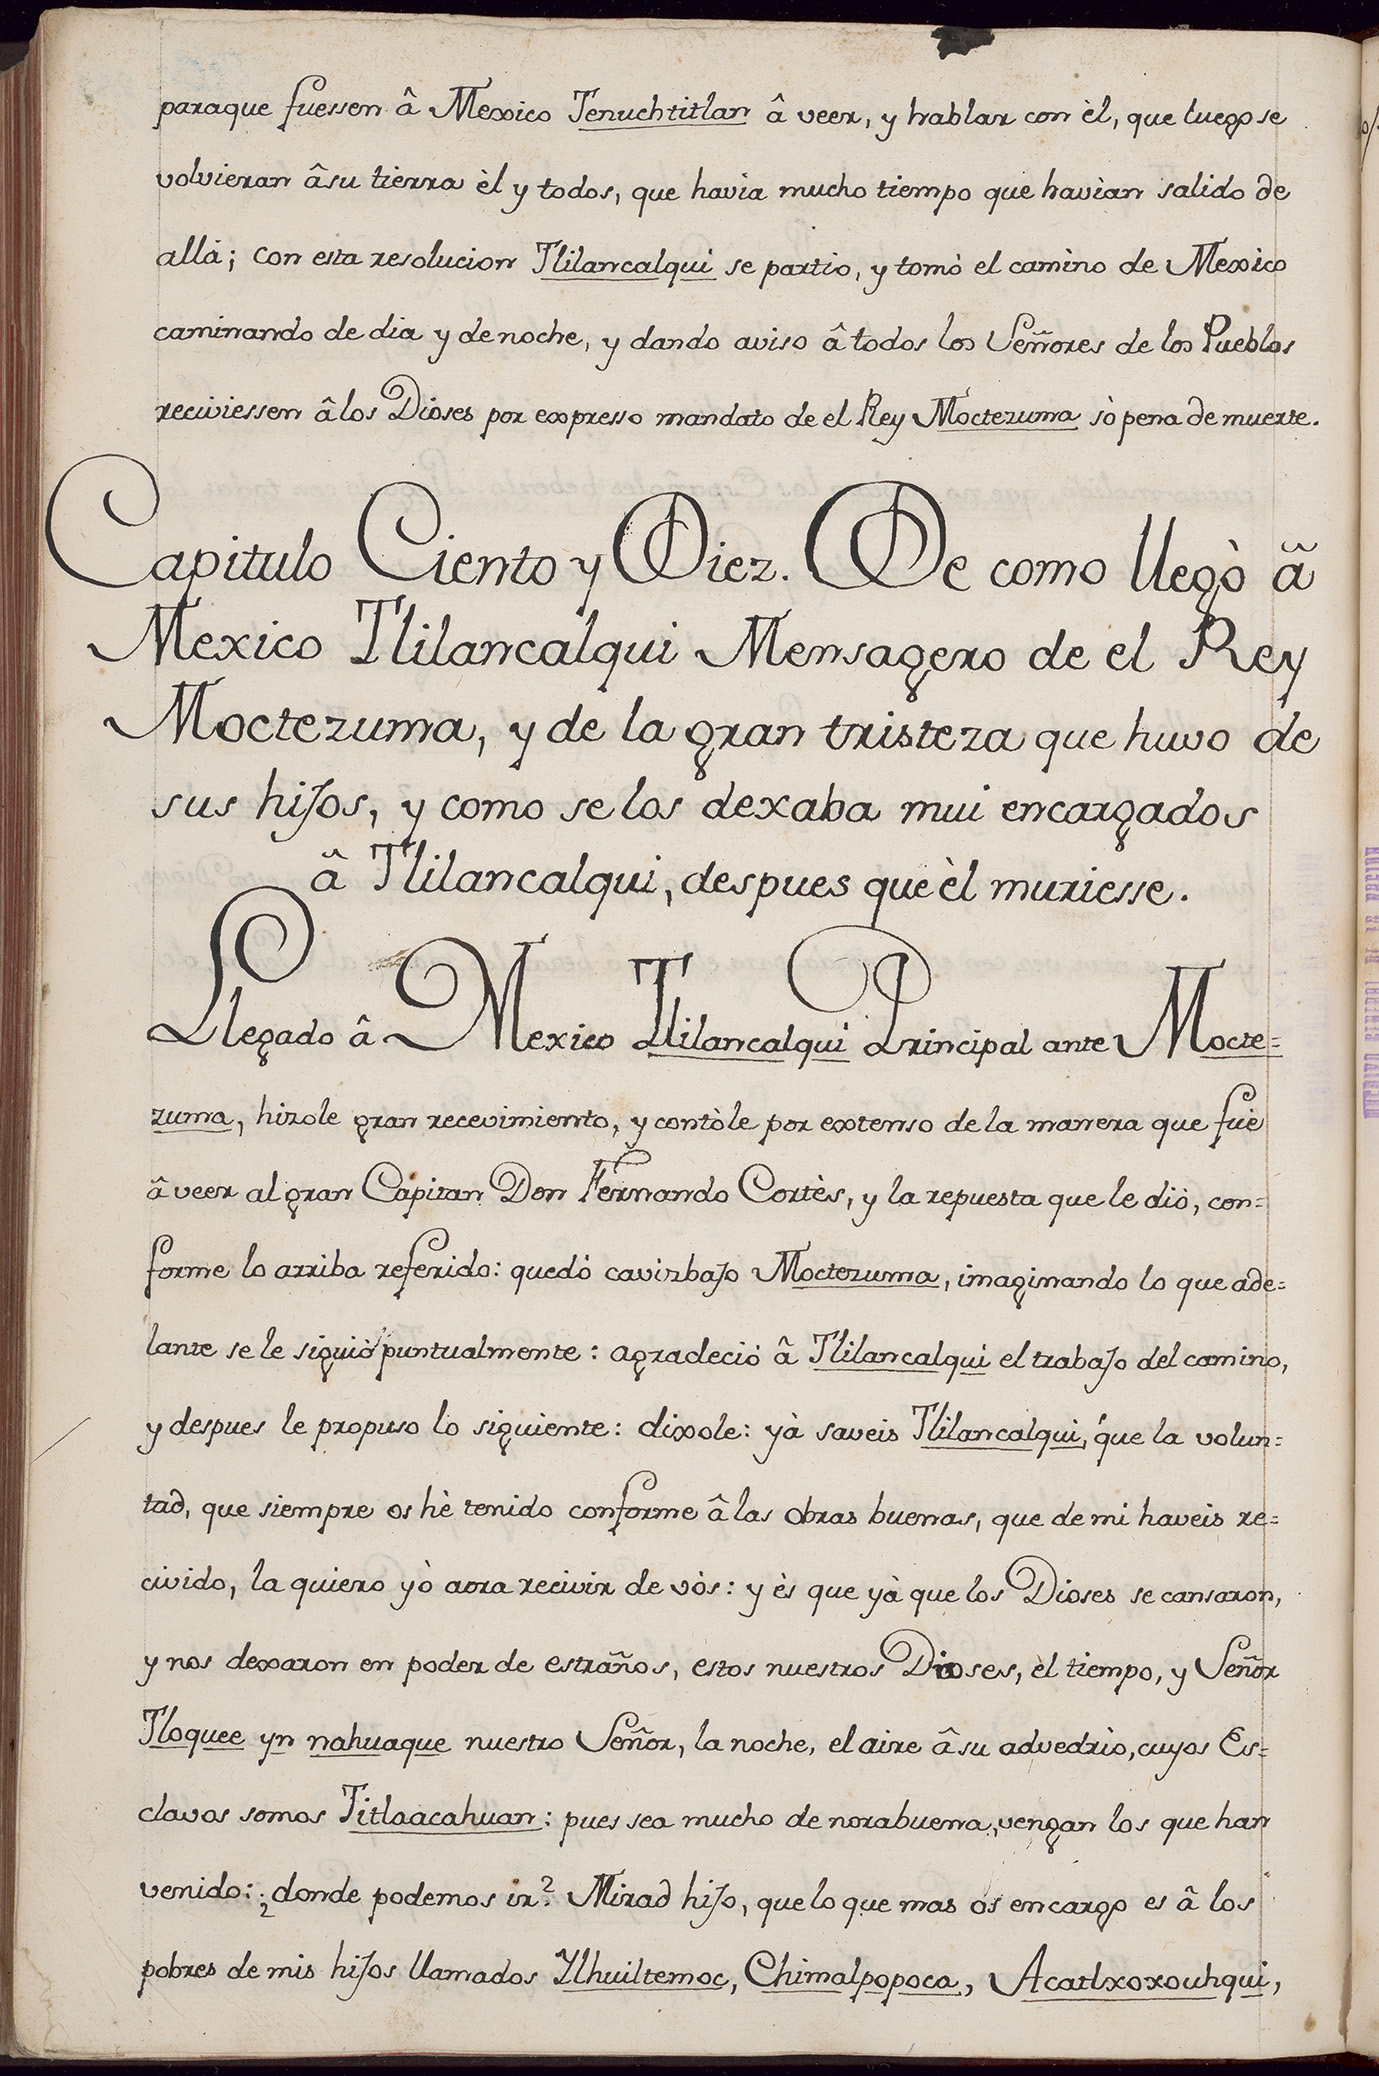 paraque fuessen â Mexico Tenuchtitlan â veer, y hablar con èl, que luego se
volvieran âsu tierra èl y todos, que havia mucho tiempo que havian salido de
allá; con esta resolucion Tlilancalqui se partio, y tomò el camino de Mexico
caminando de dia y de noche, y dando aviso â todos los Señores de los Pueblos
reciviessen â los Dioses por expresso mandato de el Rey Moctezuma sò pena de muerte.
Capitulo Ciento y Diez. De como llegò â
Mexico Tlilancalqui Mensagero de el Rey
Moctezuma, y de la gran tristeza que huvo de
sus hijos, y como se los dexaba mui encargados
â Tlilancalqui, despues que èl muriesse.
Llegado â Mexico Tlilancalqui Principal ante Mocte=
zuma, hizole gran recevimiento, y contòle por extenso de la manera que fuè
â veer al gran Capitan Don Fernando Cortès, y la repuesta que le diò, con=
forme lo arriba referido: quedó cavizbajo Moctezuma, imaginando lo que ade=
lante se le siguiò puntualmente: agradeció â Tlilancalqui el trabajo del camino,
y despues le propuso lo siguiente: dixole: yà saveis Tlilancalqui, que la volun=
tad, que siempre os hè tenido conforme â las obras buenas, que de mi haveis re=
civido, la quiero yò aora recivir de vòs: y ès que yà que los Dioses se cansaron,
y nos dexaron en poder de estraños, estos nuestros Dioses, èl tiempo, y Señor
Tloquee yn nahuaque nuestro Señor, la noche, el aire â su advedrio, cuyos Es=
clavos somos Titlaacahuan: pues sea mucho de norabuena, vengan los que han
venido: ¿donde podemos ir? Mirad hijo, que lo que mas os encargo es â los
pobres de mis hijos llamados Ylhuiltemoc, Chimalpopoca, Acatlxoxouhqui,